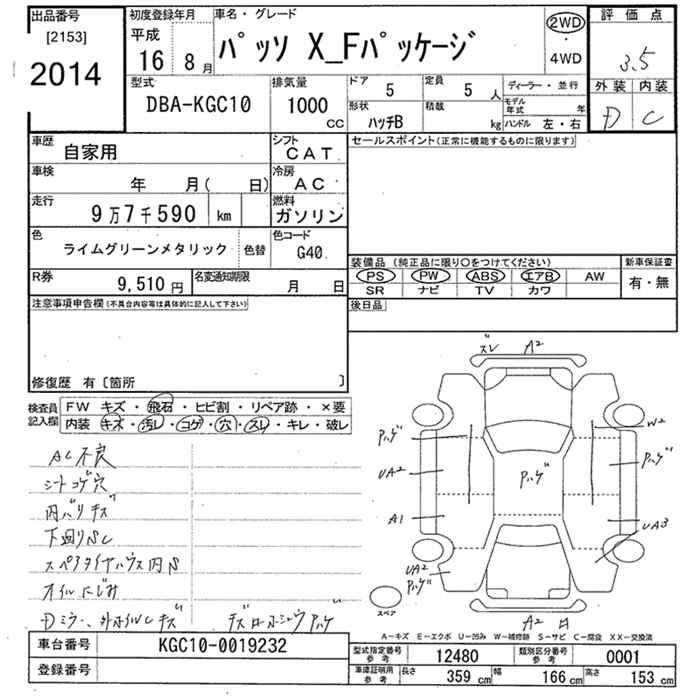 出品番号 [2153] 2014
初度登録年月 平成 16 8月
車名・グレード パッソ X_Fパッケージ
2WD ・ 4WD
評価点 3.5
外装 内装
D C
型式 DBA-KGC10
排気量 1000 cc
ドア 5 定員 5 人
形状 ハッチB 積載 kg
ディーラー・並行
モデル年式 年
ハンドル 左・右
車歴 自家用
シフト CAT
車検 年 月( 日)
冷房 AC
走行 9万7千590 km
燃料 ガソリン
色 ライムグリーンメタリック 色替
色コード G40
R券 9,510円
名変通知期限 月 日
セールスポイント(正常に機能するものに限ります)
装備品(純正品に限り○をつけてください)
PS PW ABS エアB AW
SR ナビ TV カワ
新車保証書 有・無
後日品
注意事項申告欄(不具合内容等は具体的に記入して下さい)
修復歴 有[箇所 ]
検査員記入欄
FW キズ・飛石・ヒビ割・リペア跡・×要
内装 キズ・汚レ・コゲ・穴・スレ・キレ・破レ
AC不良
シートコゲ穴
内バリキズ
下廻りSC
スペアタイヤハウス内S
オイルにじみ
ズレ A2
パハゲ W2
UA2 パハゲ パハゲ
A1 UA3
UA2
パハゲ
スペア
A2
車台番号 KGC10-0019232
登録番号
A－キズ E－エクボ U－凹み W－補修跡 S－サビ C－腐食 XX－交換済
型式指定番号 参考 12480 類別区分番号 参考 0001
車庫証明用 参考 長さ 359 cm 幅 166 cm 高さ 153 cm